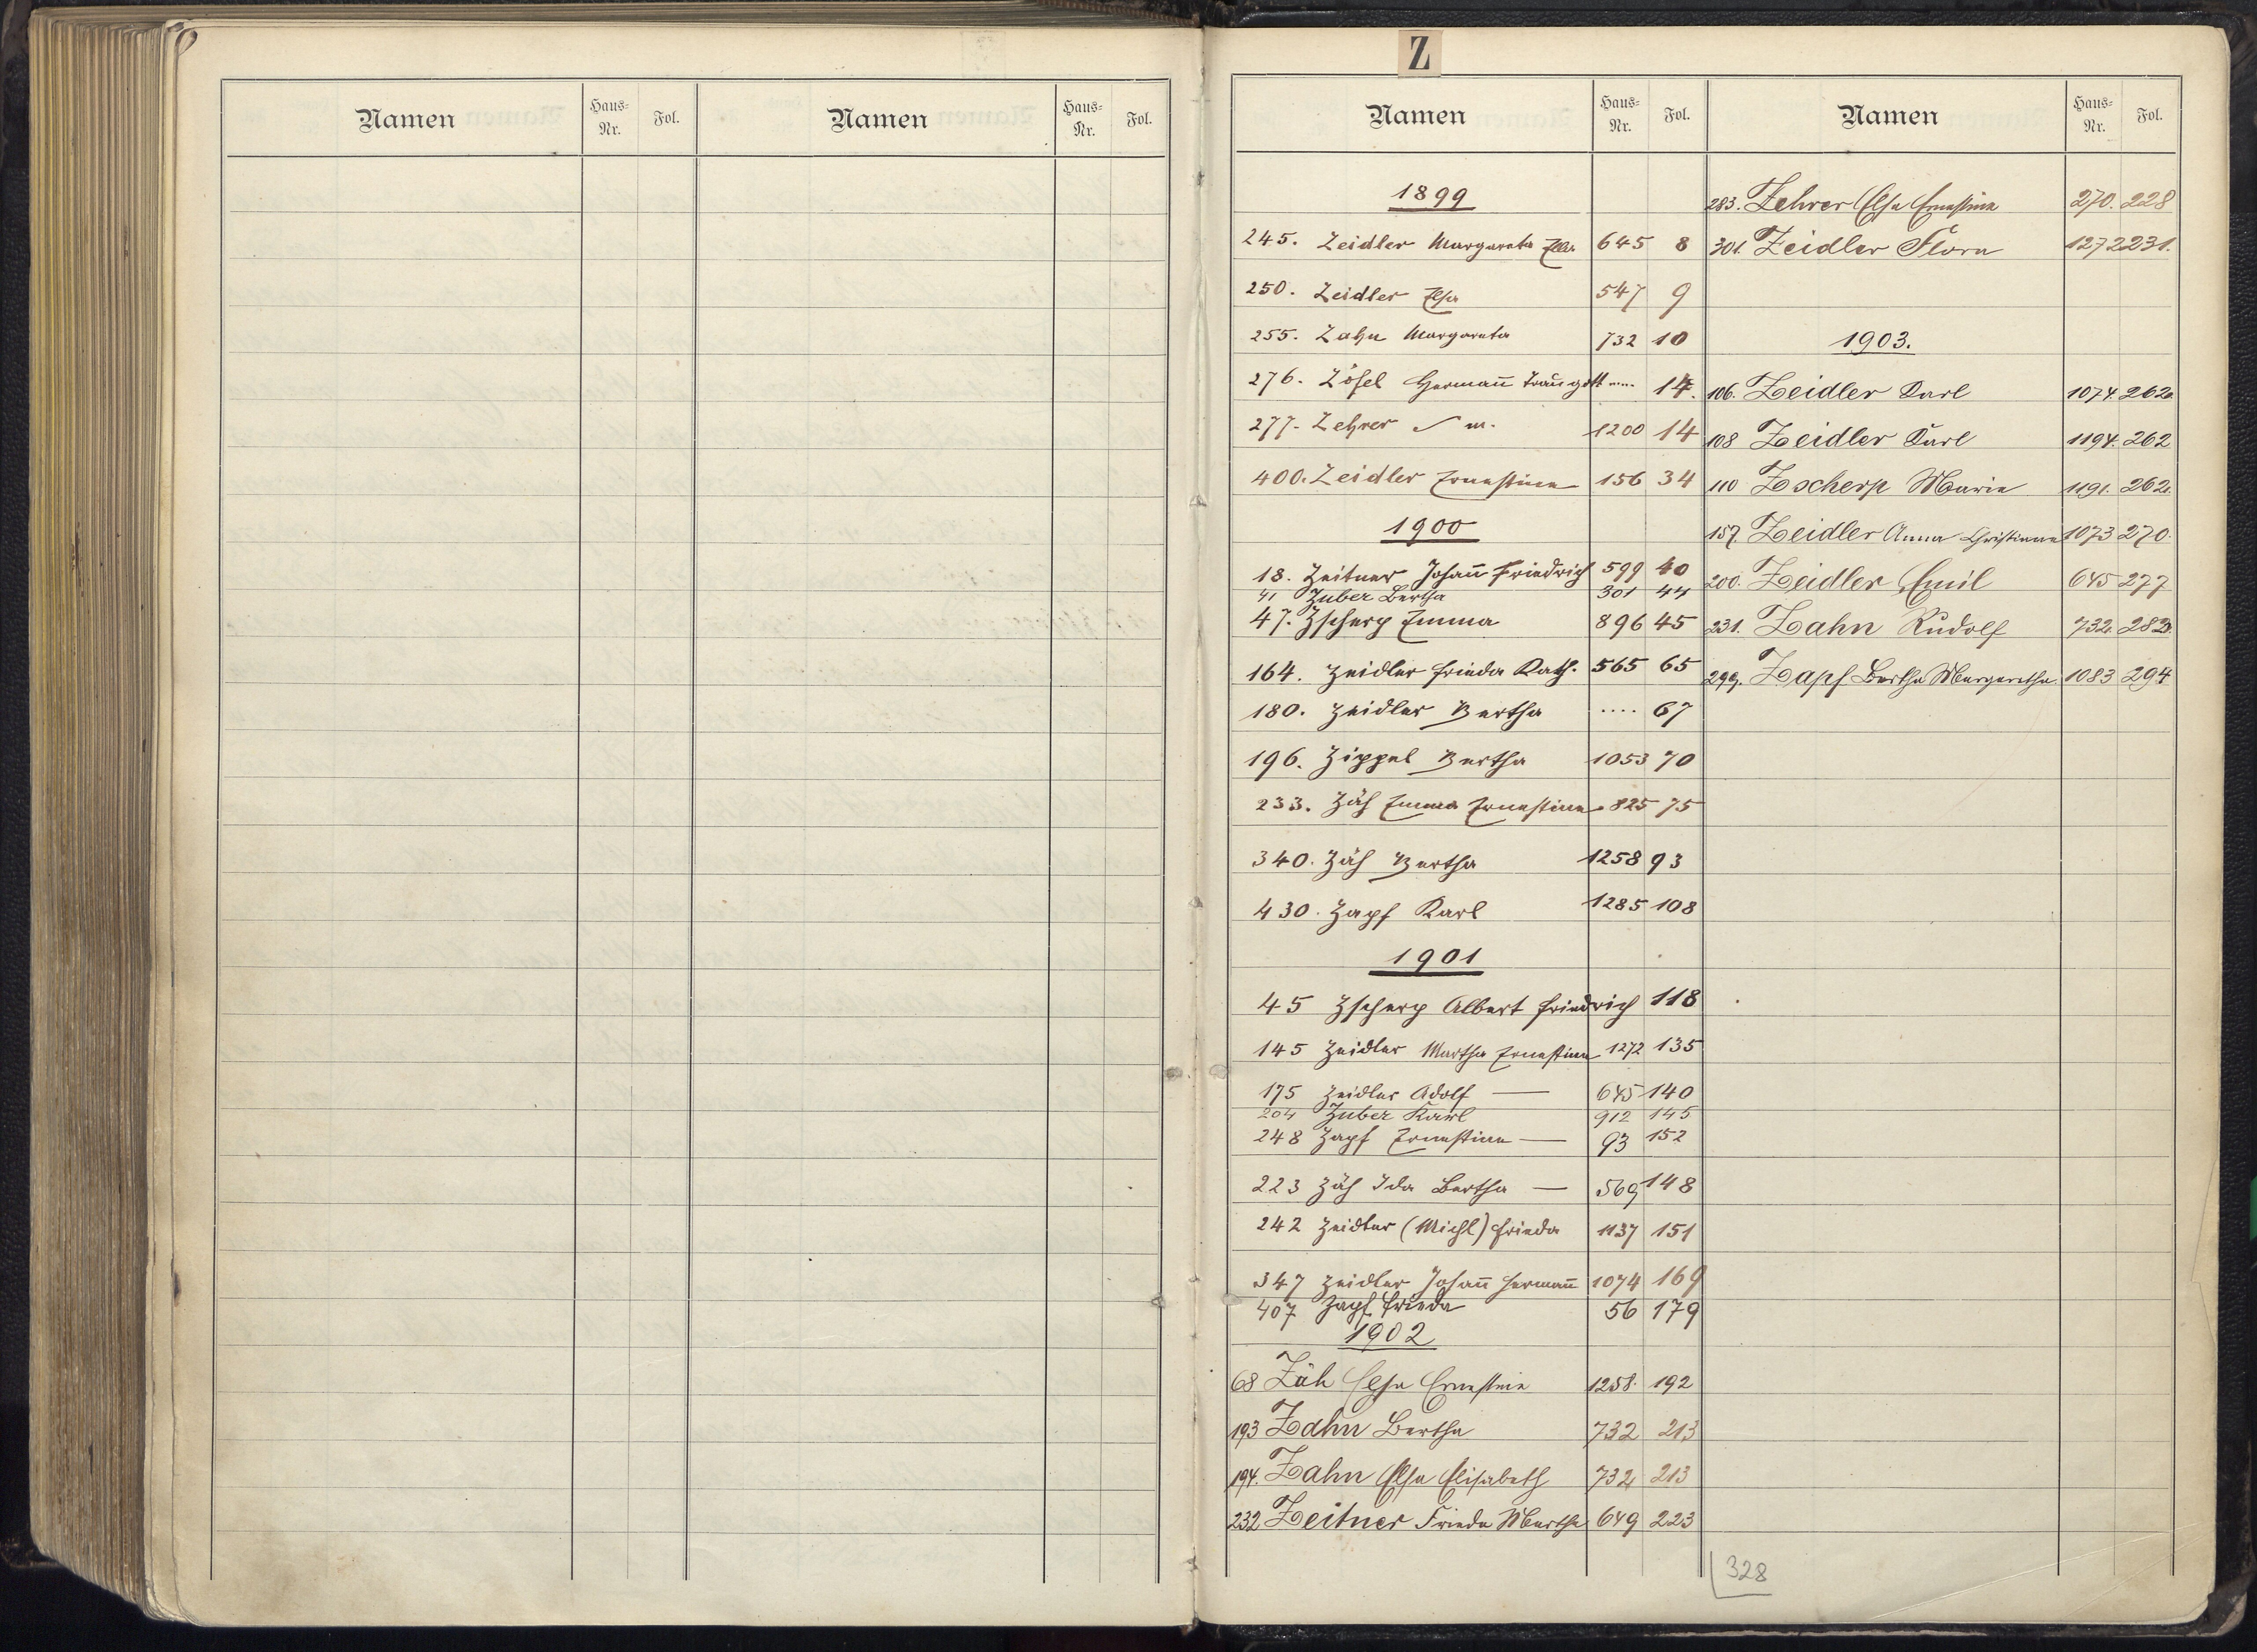 Namen Haus-Nr. Fol. Namen Haus-Nr. Fol.
Z
Namen Haus-Nr. Fol. Namen Haus-Nr. Fol.
1899
245. Zeidler Margareta Ella 645 8
250. Zeidler Elsa 547 9
255. Zahn Margareta 732 10
276. Zösel Hermañ Traugott .... 14.
277. Zehrer m. 1200 14
400. Zeidler Ernestine 156 34
1900
18. Zeitner Johañ Friedrich 599 40
41 Zuber Bertha 301 44
47. Zscherp Emma 896 45
164. Zeidler Frieda Kath. 565 65
180. Zeidler Bertha .... 67
196. Zippel Bertha 1053 70
233. Zäh Emma Ernestine 825 75
340. Zäh Bertha 1258 93
430. Zapf Karl 1285 108
1901
45 Zscherp Albert Friedrich 118
145 Zeidler Martha Ernestine 1272 135
175 Zeidler Adolf — 645 140
204 Zuber Karl 912 145
248 Zapf Ernestine — 93 152
223 Zäh Ida Bertha — 569 148
242 Zeidler (Michl) Frieda 1137 151
347 Zeidler Johañ Hermañ 1074 169
407 Zapf Frieda 56 179
1902
68 Zäh Elsa Ernestine 1258. 192
193 Zahn Bertha 732 213
194. Zahn Elsa Elisabeth 732 213
232 Zeitner Frieda Martha 649 223
283. Zehrer Elsa Ernestine 270. 228
301. Zeidler Flora 1272 231.
1903.
106. Zeidler Karl 1074. 262.
108 Zeidler Karl 1194. 262
110 Zscherp Marie 1191. 262.
157. Zeidler Anna Christiane 1073 270.
200. Zeidler Emil 645 277
231. Zahn Rudolf 732. 283.
299. Zapf Bertha Margaretha 1083 294
328